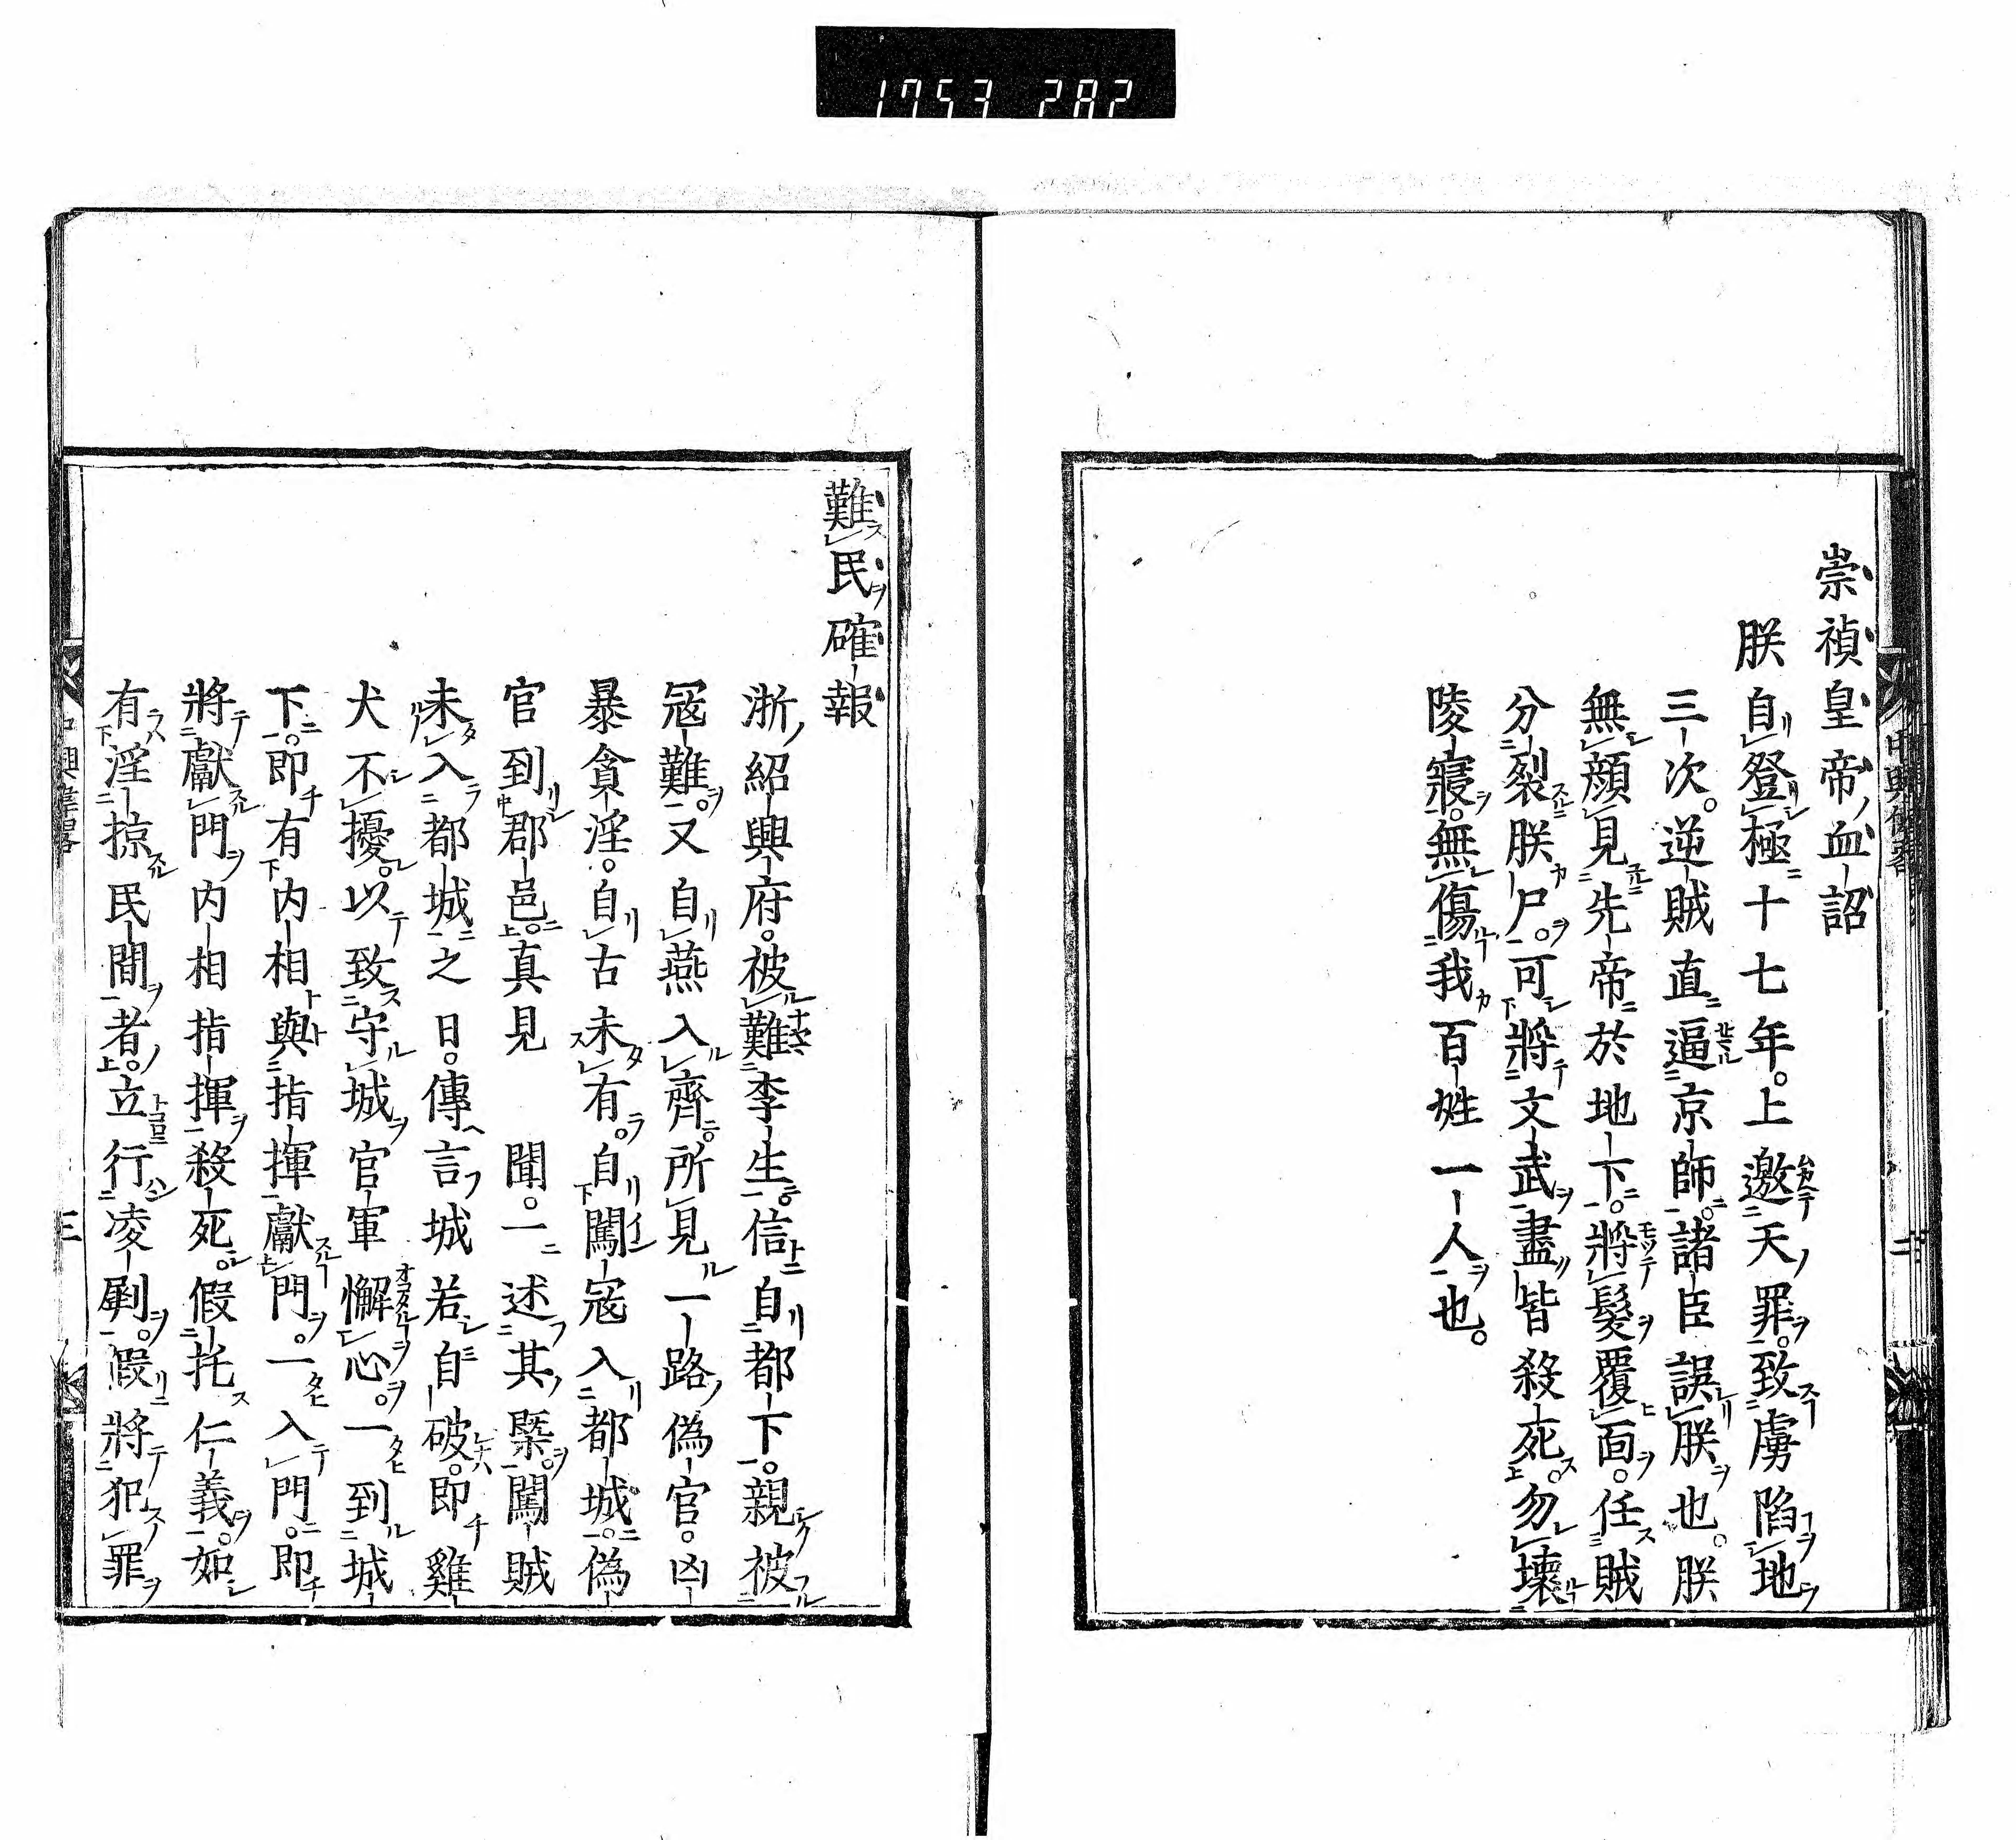 1753 282
崇禎皇帝血詔
朕自登極十七年。上邀天罪。致虜陷地
三次。逆賊直逼京師。諸臣誤朕也。朕
無顔見先帝於地下。將髮覆面。任賊
分裂朕尸。可將文武盡皆殺死。勿壞
陵寢。無傷我百姓一人也。
二
難民確報
浙紹興府。被難李生。信自都下。親被
冦難。又自燕入齊。所見一路。偽官。凶
暴貪淫。自古未有。自闖冦入都城。偽
官到郡邑。真見聞。一述其槩。闖賊
未入都城之日。傳言城若自破。即雞
犬不擾。以致守城官軍懈心。一到城
下。即有内相與指揮獻門。一入門。即
將獻門内相指揮殺死。假托仁義。如
有淫掠民間者。立行凌剮。假將犯罪
中興偉畧
三